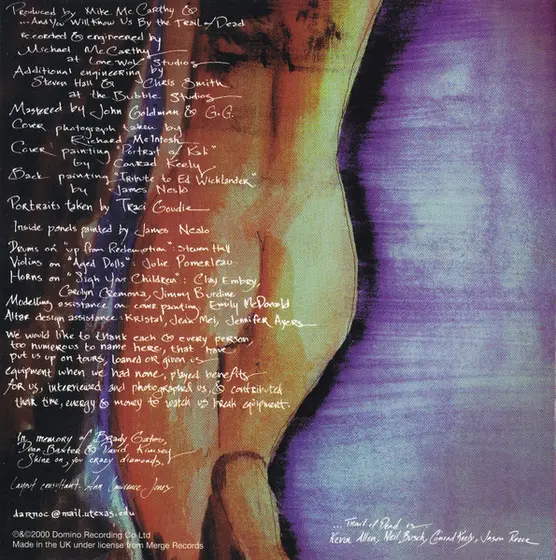 Produced by Mike McCarthy &
...And You Will Know Us By the Trail of Dead
Recorded & engineered by
Michael McCarthy
at Lone Wolf Studios
Additional engineering by
Steven Hall & Chris Smith
at the Bubble Studios
Mastered by John Goldman & G.G.
Cover photograph taken by
Richard McIntosh
Cover painting "Portrait of Kali"
by Conrad Keely
Back painting "Tribute to Ed Wicklander"
by James Neslo
Portraits taken by Traci Goudie
Inside panels painted by James Neslo
Drums on "up from Redemption": Steven Hall
Violins on "Aged Dolls": Julie Pomerleau
Horns on "Sigh Your Children": Clay Embry,
Carolyn Cremona, Jimmy Burdine
Modelling assistance on cover painting, Emily McDonald
Altar design assistance: Kristal, Jean Mei, Jennifer Ayers
We would like to thank each & every person,
too numerous to name here, that have
put us up on tours, loaned or given us
equipment when we had none, played benefits
for us, interviewed and photographed us, & contributed
their time, energy & money to watch us break equipment.
In memory of Brady
Dean Baxter & David Kimsey
Shine on, you crazy diamonds.
Layout consultant: Ann Laurence Jones
darrnoc@mail.utexas.edu
℗&©2000 Domino Recording Co Ltd
Made in the UK under license from Merge Records
...Trail of Dead is
Kevin Allen, Neil Busch, Conrad Keely, Jason Reece